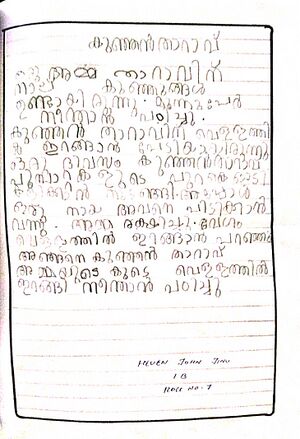 കുഞ്ഞൻതാറാവ്
ഒരു അമ്മ താറാവിന്
നാല് കുഞ്ഞുങ്ങൾ
ഉണ്ടായിരുന്നു. മൂന്നുപേർ
നീന്താൻ പഠിച്ചു.
കുഞ്ഞൻ താറാവിന് വെള്ളത്തി
ൽ ഇറങ്ങാൻ പേടിയായിരുന്നു
ഒരു ദിവസം കുഞ്ഞൻതാറാവ്
പൂമ്പാറ്റകളുടെ പുറകെ ഓടി
ഒരു നായ അവനെ പിടിക്കാൻ
വന്നു. അമ്മ രക്ഷിച്ചു. വേഗം
വെള്ളത്തിൽ ഇറങ്ങാൻ പറഞ്ഞു
അങ്ങനെ കുഞ്ഞൻ താറാവ്
അമ്മയുടെ കൂടെ വെള്ളത്തിൽ
ഇറങ്ങി നീന്താൻ പഠിച്ചു
HEVEN JOHN JINU
1 B
ROLL NO - 7